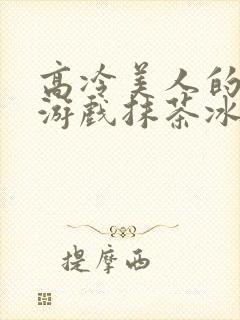 高冷美人的
游戏抹茶冰
提摩西